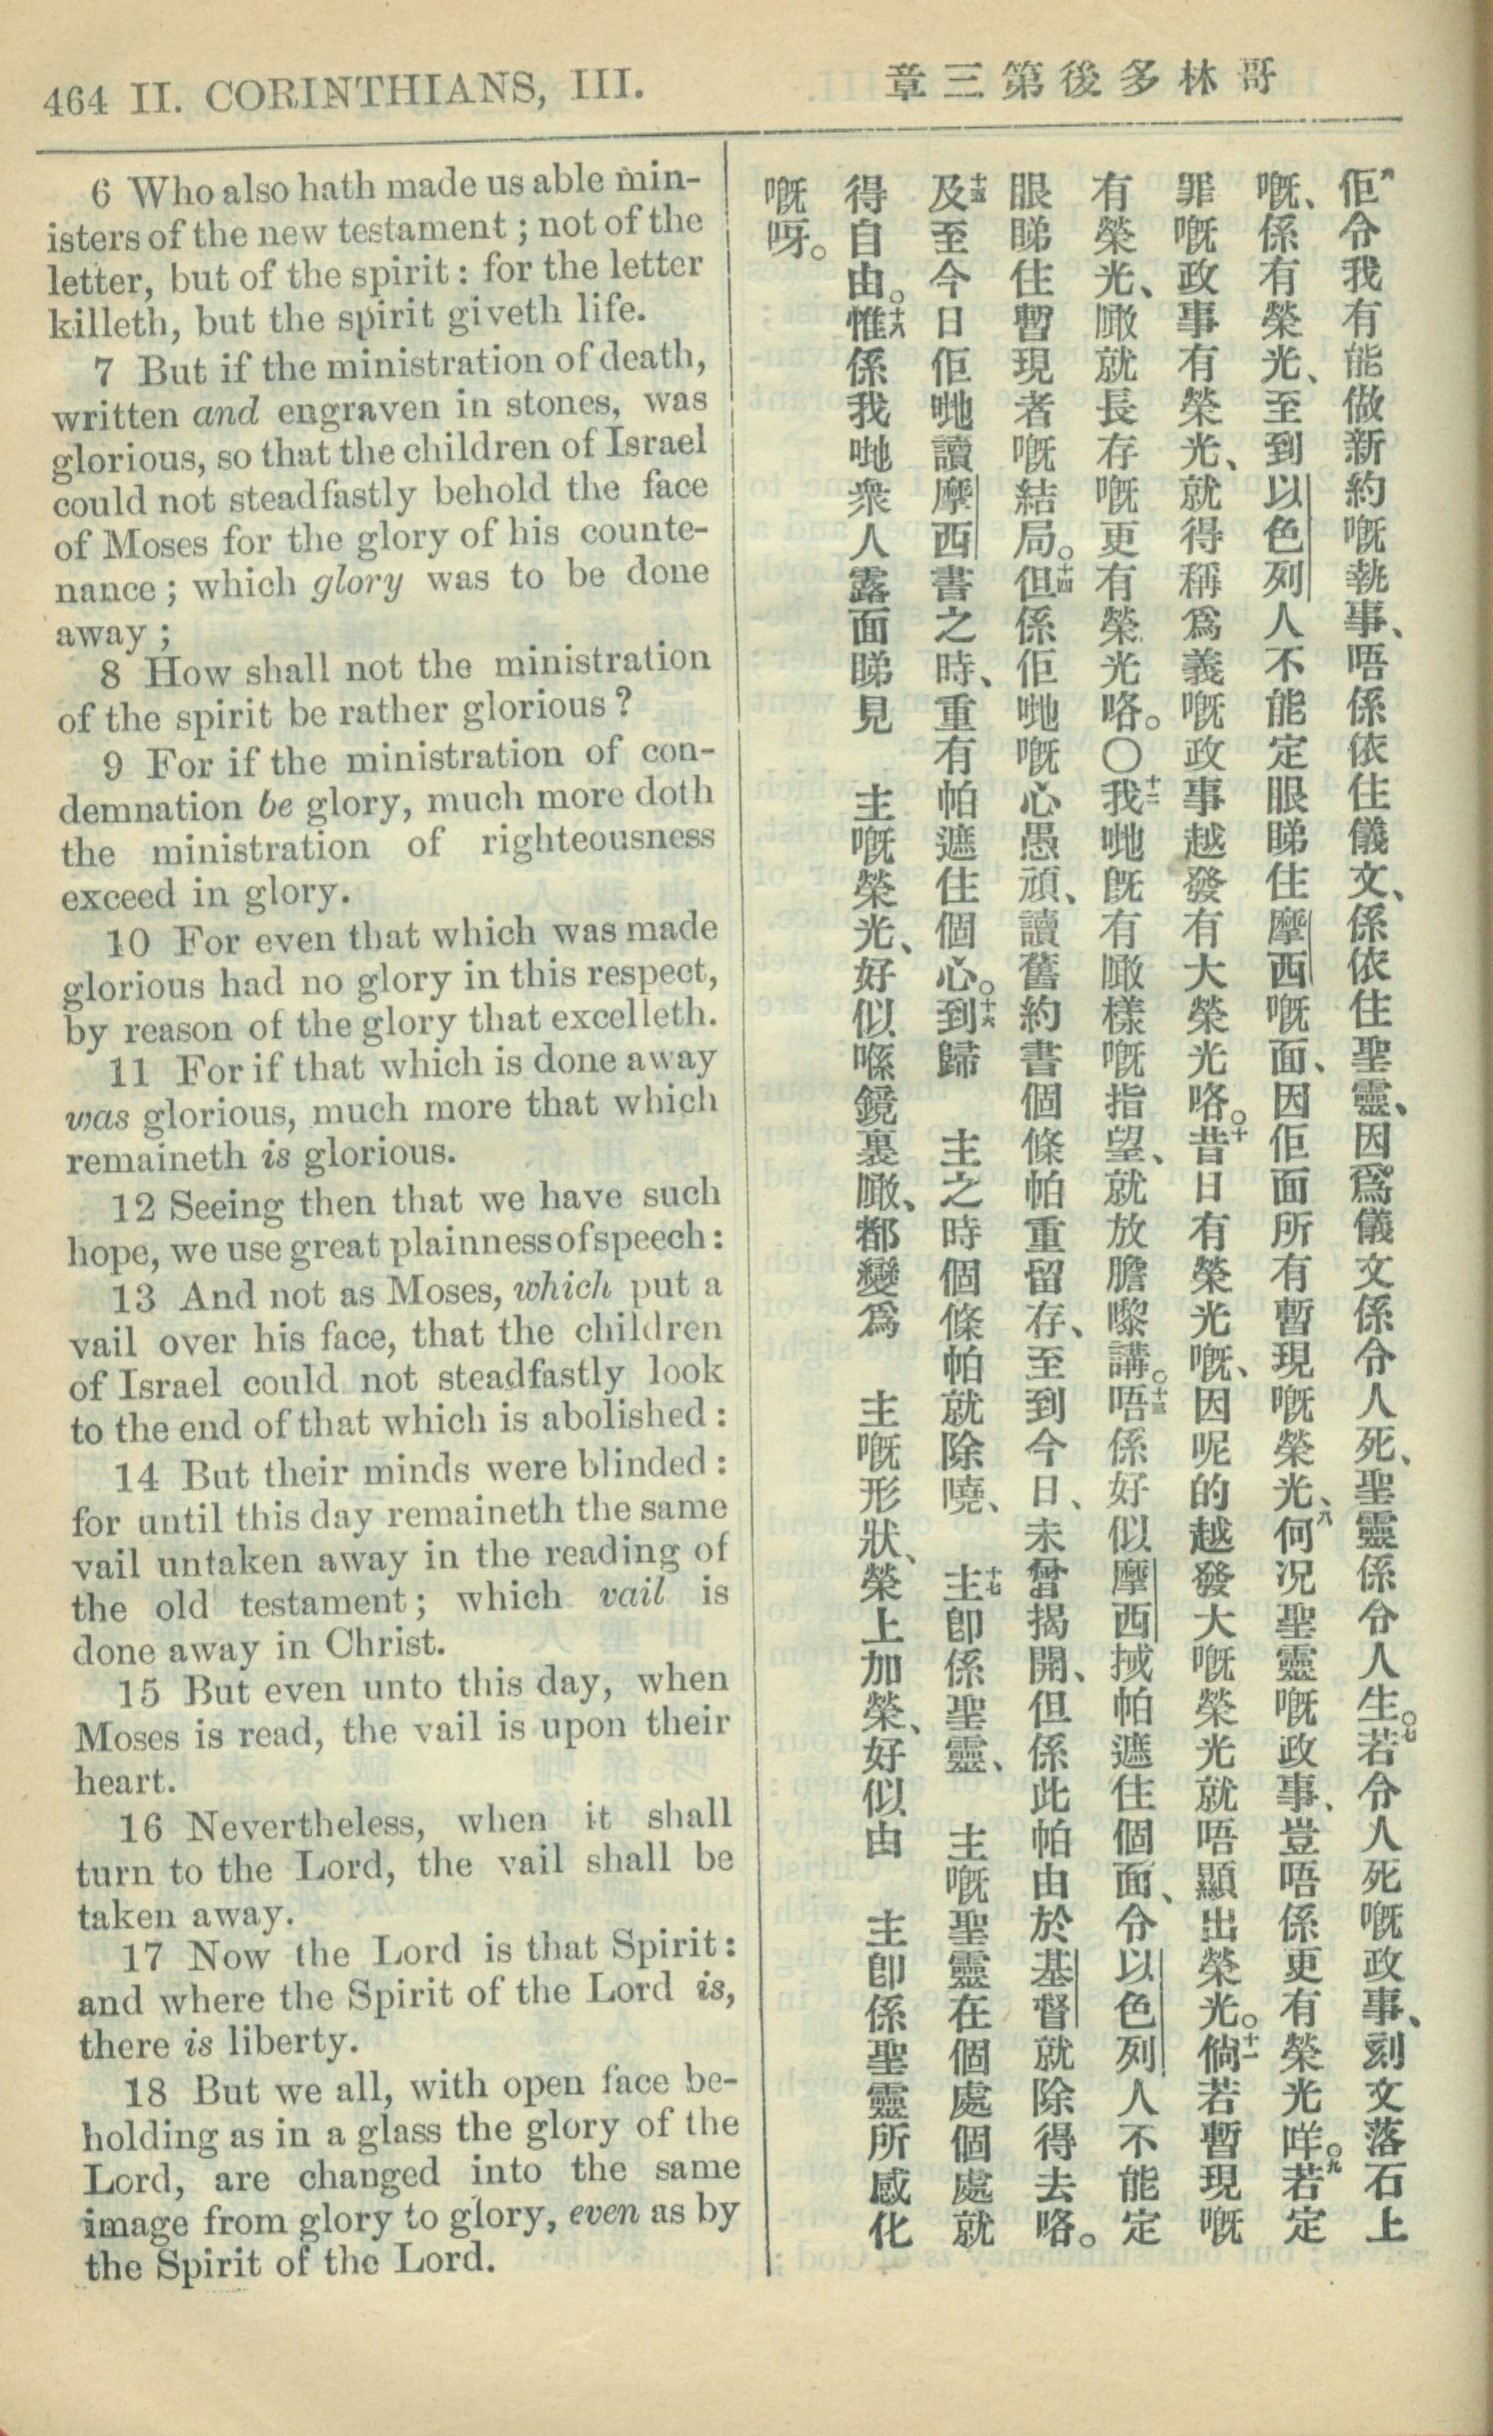 464 II. CORINTHIANS, III.
哥林多後第三章
6 Who also hath made us able min-
isters of the new testament; not of the
letter, but of the spirit: for the letter
killeth, but the spirit giveth life.
7 But if the ministration of death,
written and engraven in stones, was
glorious, so that the children of Israel
could not steadfastly behold the face
of Moses for the glory of his counte-
nance; which glory was to be done
away;
8 How shall not the ministration
of the spirit be rather glorious?
9 For if the ministration of con-
demnation be glory, much more doth
the ministration of righteousness
exceed in glory.
10 For even that which was made
glorious had no glory in this respect,
by reason of the glory that excelleth.
11 For if that which is done away
was glorious, much more that which
remaineth is glorious.
12 Seeing then that we have such
hope, we use great plainness of speech:
13 And not as Moses, which put a
vail over his face, that the children
of Israel could not steadfastly look
to the end of that which is abolished:
14 But their minds were blinded:
for until this day remaineth the same
vail untaken away in the reading of
the old testament; which vail is
done away in Christ.
15 But even unto this day, when
Moses is read, the vail is upon their
heart.
16 Nevertheless, when it shall
turn to the Lord, the vail shall be
taken away.
17 Now the Lord is that Spirit:
and where the Spirit of the Lord is,
there is liberty.
18 But we all, with open face be-
holding as in a glass the glory of the
Lord, are changed into the same
image from glory to glory, even as by
the Spirit of the Lord.
六佢令我有能做新約嘅執事、唔係依住儀文、係依住聖靈、因爲儀文係令人死、聖靈係令人生。七若令人死嘅政事、刻文落石上
嘅、係有榮光、至到以色列人不能定眼睇住摩西嘅面、因佢面所有暫現嘅榮光、八何况聖靈嘅政事、豈唔係更有榮光咩。九若定
罪嘅政事有榮光、就得稱爲義嘅政事越發有大榮光咯。十昔日有榮光嘅、因呢的越發大嘅榮光就唔顯出榮光。十一倘若暫現嘅
有榮光、噉就長存嘅更有榮光咯。〇十二我哋既有噉樣嘅指望、就放膽嚟講。十三唔係好似摩西搣帕遮住個面、令以色列人不能定
眼睇住暫現者嘅結局。十四但係佢哋嘅心愚頑、讀舊約書個條帕重留存、至到今日、未曾揭開、但係此帕由於基督就除得去咯。
十五及至今日佢哋讀摩西書之時、重有帕遮住個心。十六到歸 主之時個條帕就除曉、 十七主卽係聖靈、 主嘅聖靈在個處個處就
得自由。十八惟係我哋衆人露面睇見 主嘅榮光、好似喺鏡裏噉、都變爲 主嘅形狀、榮上加榮、好似由 主卽係聖靈所感化
嘅呀。